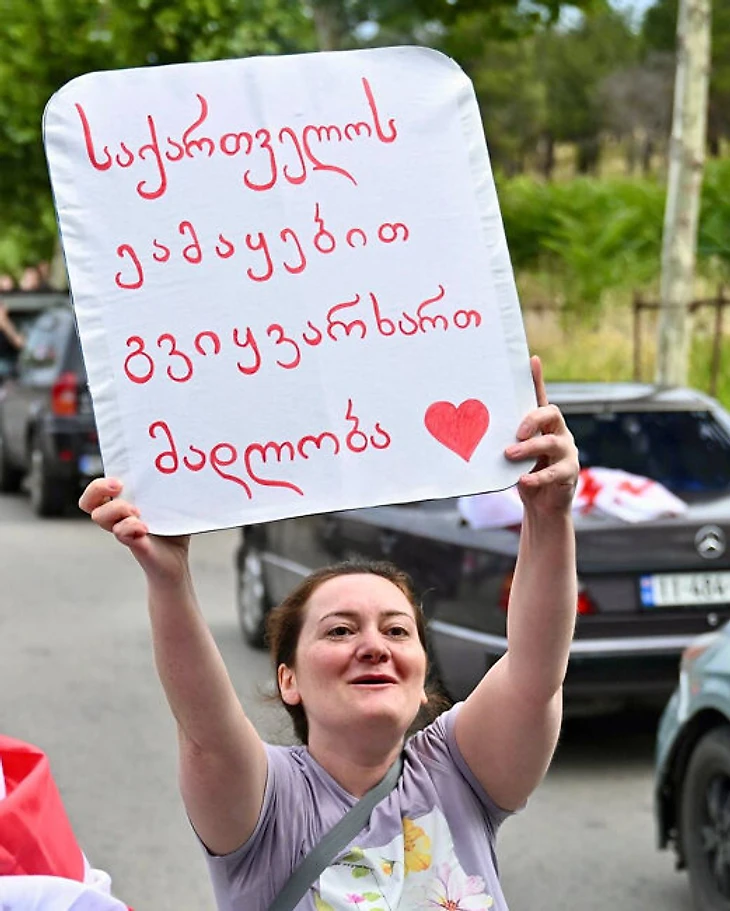 საქართველოს
ეამაყებით
გვიყვარხართ
მადლობა